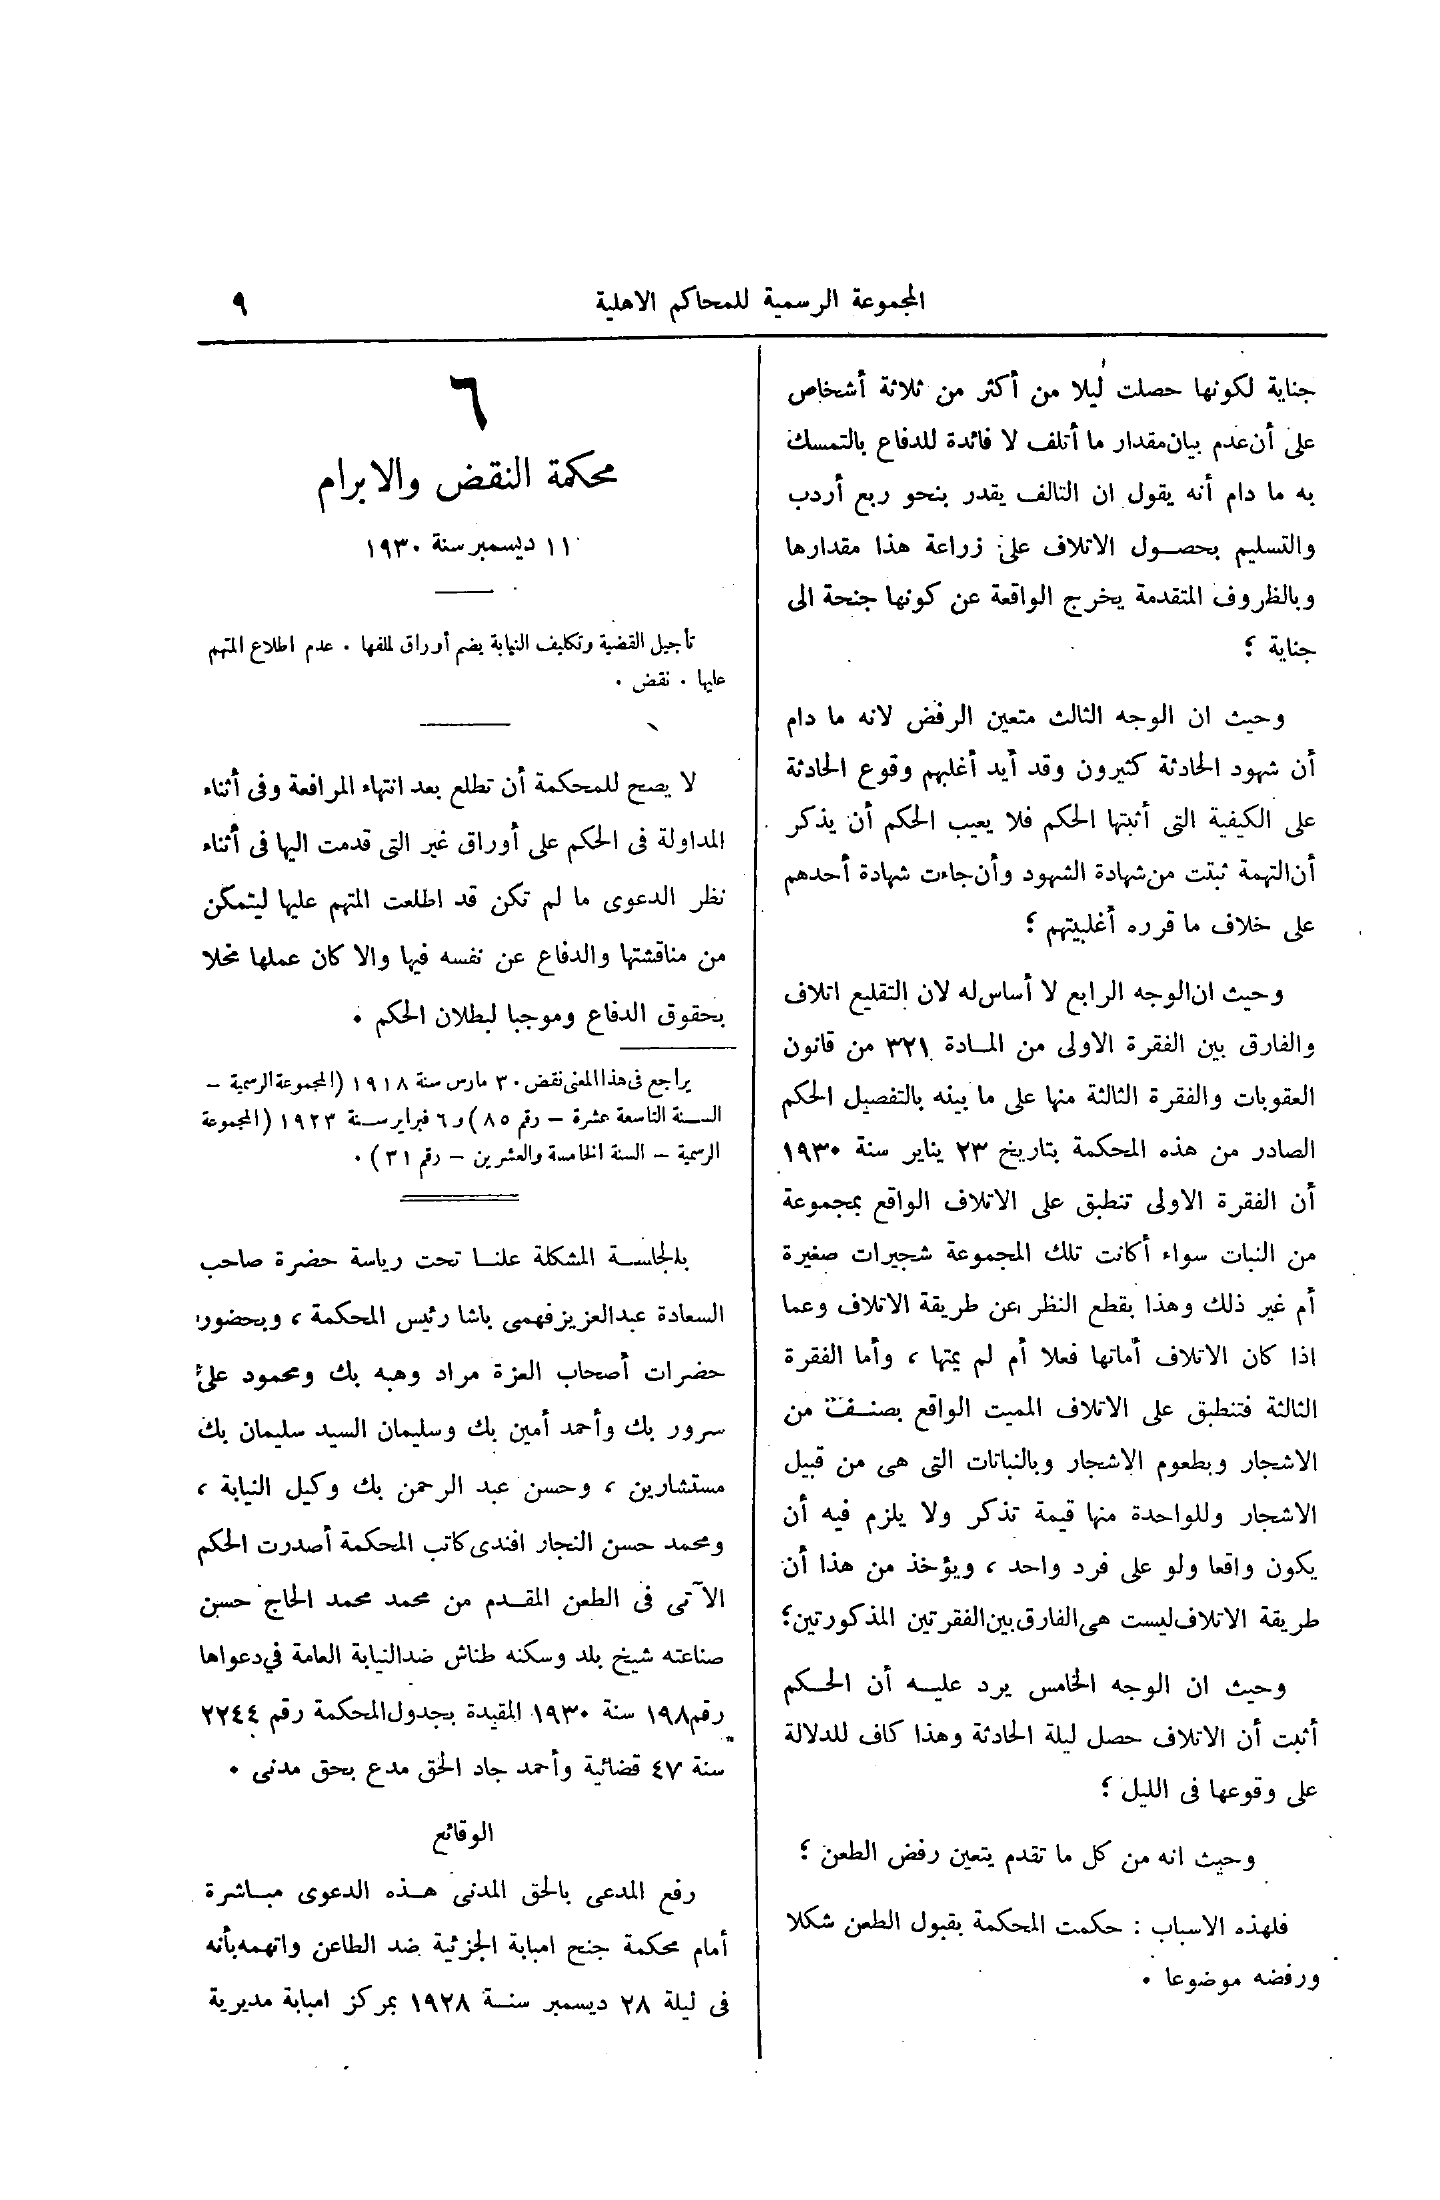 المجموعة الرسمية للمحاكم الاهلية
٩
جناية لكونها حصلت ليلا من أكثر من ثلاثة أشخاص
على أن عدم بيان مقدار ما أتلف لا فائدة للدفاع بالتمسك
به ما دام أنه يقول ان التالف يقدر بنحو ربع أردب
والتسليم بحصول الاتلاف على زراعة هذا مقدارها
وبالظروف المتقدمة يخرج الواقعة عن كونها جنحة الى
جناية ؛
وحيث ان الوجه الثالث متعين الرفض لانه ما دام
أن شهود الحادثة كثيرون وقد أيد أغلبهم وقوع الحادثة
على الكيفية التى أثبتها الحكم فلا يعيب الحكم أن يذكر
أن التهمة ثبتت من شهادة الشهود وأن جاءت شهادة أحدهم
على خلاف ما قرره أغلبيتهم ؛
وحيث ان الوجه الرابع لا أساس له لان التقليع اتلاف
والفارق بين الفقرة الاولى من المادة ٣٢١ من قانون
العقوبات والفقرة الثالثة منها على ما بينه بالتفصيل الحكم
الصادر من هذه المحكمة بتاريخ ٢٣ يناير سنة ١٩٣٠
أن الفقرة الاولى تنطبق على الاتلاف الواقع بمجموعة
من النبات سواء أكانت تلك المجموعة شجيرات صغيرة
أم غير ذلك وهذا بقطع النظر عن طريقة الاتلاف وعما
اذا كان الاتلاف أماتها فعلا أم لم يمتها ، وأما الفقرة
الثالثة فتنطبق على الاتلاف المميت الواقع بصنف من
الاشجار وبطعوم الاشجار وبالنباتات التى هى من قبيل
الاشجار وللواحدة منها قيمة تذكر ولا يلزم فيه أن
يكون واقعا ولو على فرد واحد ، ويؤخذ من هذا أن
طريقة الاتلاف ليست هى الفارق بين الفقرتين المذكورتين ؛
وحيث ان الوجه الخامس يرد عليه أن الحكم
أثبت أن الاتلاف حصل ليلة الحادثة وهذا كاف للدلالة
على وقوعها فى الليل ؛
وحيث انه من كل ما تقدم يتعين رفض الطعن ؛
فلهذه الاسباب : حكمت المحكمة بقبول الطعن شكلا
ورفضه موضوعا .
٦
محكمة النقض والابرام
١١ ديسمبر سنة ١٩٣٠
تأجيل القضية وتكليف النيابة بضم أوراق لملفها . عدم اطلاع المتهم
عليها . نقض .
لا يصح للمحكمة أن تطلع بعد انتهاء المرافعة وفى أثناء
المداولة فى الحكم على أوراق غير التى قدمت اليها فى أثناء
نظر الدعوى ما لم تكن قد اطلعت المتهم عليها ليتمكن
من مناقشتها والدفاع عن نفسه فيها والا كان عملها مخلا
بحقوق الدفاع وموجبا لبطلان الحكم .
يراجع فى هذا المعنى نقض ٣٠ مارس سنة ١٩١٨ (المجموعة الرسمية –
السنة التاسعة عشرة – رقم ٨٥) و ٦ فبراير سنة ١٩٢٣ (المجموعة
الرسمية – السنة الخامسة والعشرين – رقم ٣١) .
بالجلسة المشكلة علنا تحت رياسة حضرة صاحب
السعادة عبد العزيز فهمى باشا رئيس المحكمة ، وبحضور
حضرات أصحاب العزة مراد وهبه بك ومحمود على
سرور بك وأحمد أمين بك وسليمان السيد سليمان بك
مستشارين ، وحسن عبد الرحمن بك وكيل النيابة ،
ومحمد حسن النجار افندى كاتب المحكمة أصدرت الحكم
الآتى فى الطعن المقدم من محمد محمد الحاج حسن
صناعته شيخ بلد وسكنه طناش ضد النيابة العامة في دعواها
رقم ١٩٨ سنة ١٩٣٠ المقيدة بجدول المحكمة رقم ٢٢٤٤
سنة ٤٧ قضائية وأحمد جاد الحق مدع بحق مدنى .
الوقائع
رفع المدعى بالحق المدنى هذه الدعوى مباشرة
أمام محكمة جنح امبابة الجزئية ضد الطاعن واتهمه بأنه
فى ليلة ٢٨ ديسمبر سنة ١٩٢٨ بمركز امبابة مديرية